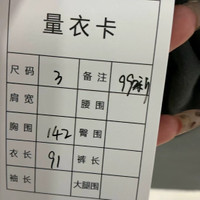 量衣卡
尺码 3 备注 99新
肩宽 腰围
胸围 142 臀围
衣长 91 裤长
袖长 大腿围